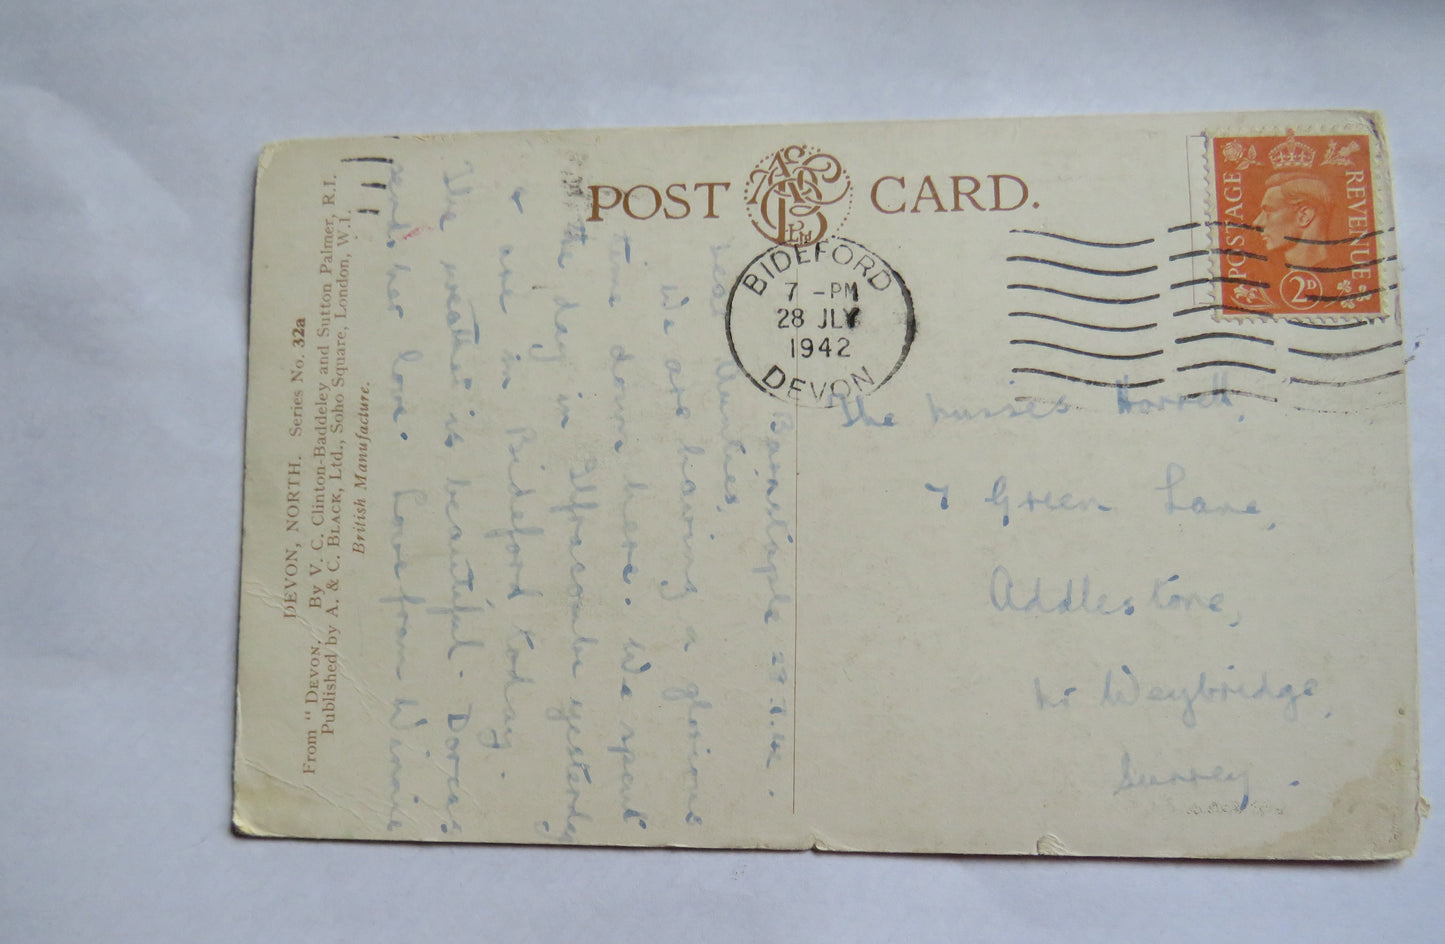 POST CARD.
A & C B Ltd
BIDEFORD
7 - PM
28 JLY
1942
DEVON
POSTAGE REVENUE
2D
DEVON, NORTH. Series No. 32a
From "DEVON. By V. C. Clinton-Baddeley and Sutton Palmer, R.I.
Published by A. & C. BLACK, Ltd., Soho Square, London, W.1.
British Manufacture.
Barnstaple
Dear Aunties,
We are having a glorious
time down here. We spent
the day in Ilfracombe yesterday
& are in Bideford today.
The weather is beautiful. Dorcas
sends her love. Love from Winnie
The Misses Horrell,
7 Green Lane,
Addlestone,
Nr Weybridge,
Surrey.